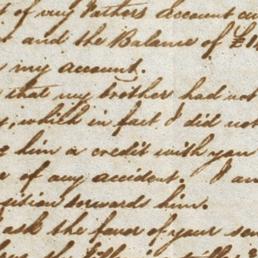 t of my Fathers Account cu
and the Balance of £1
my account.
that my brother had not
, which in fact I did not
him a credit with you
of any accident. I am
sition towards him.
ask the favor of your sen